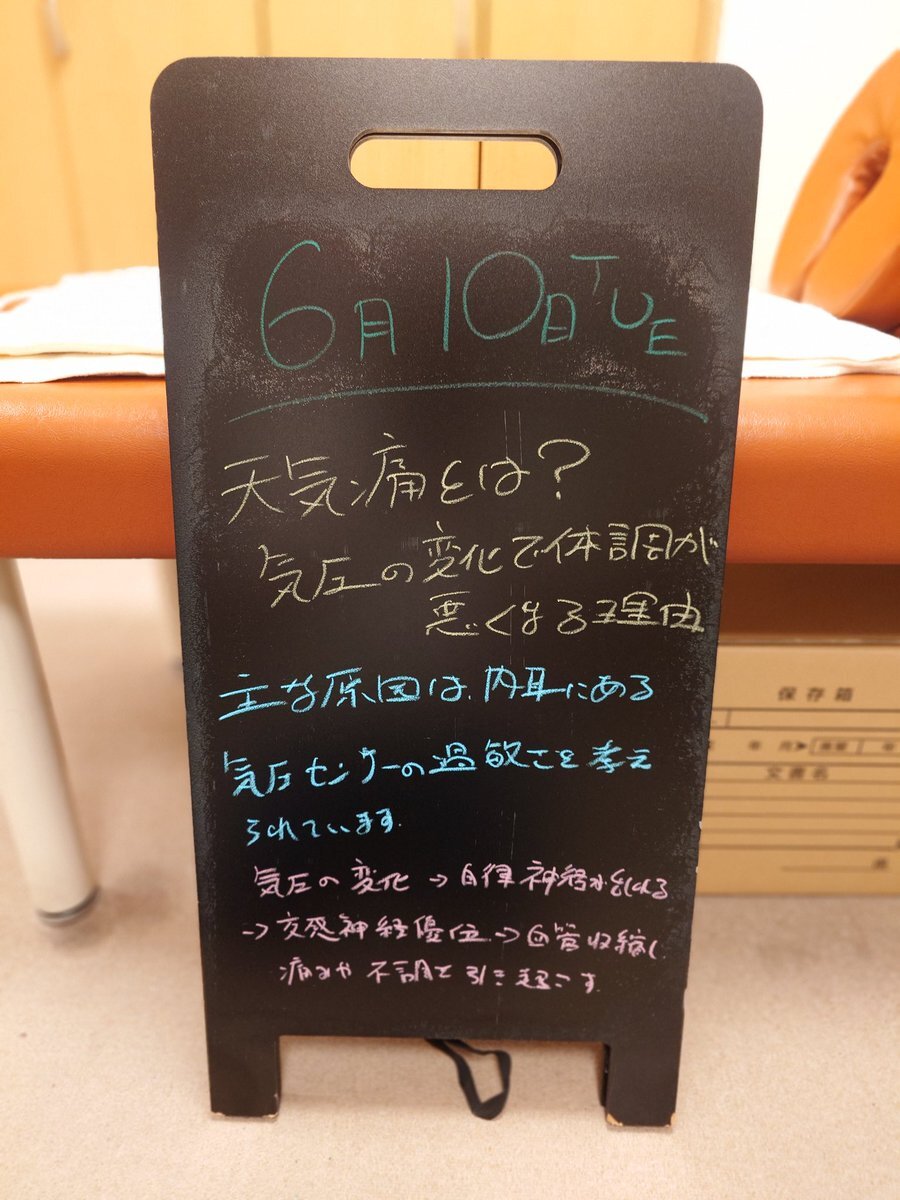 6月10日TUE
天気痛とは?
気圧の変化で体調が
悪くなる理由
主な原因は、内耳にある
気圧センサーの過敏さと考え
られています。
気圧の変化→自律神経が乱れる
→交感神経優位→血管収縮し
痛みや不調を引き起こす。
保存箱
年 月
年
文書名